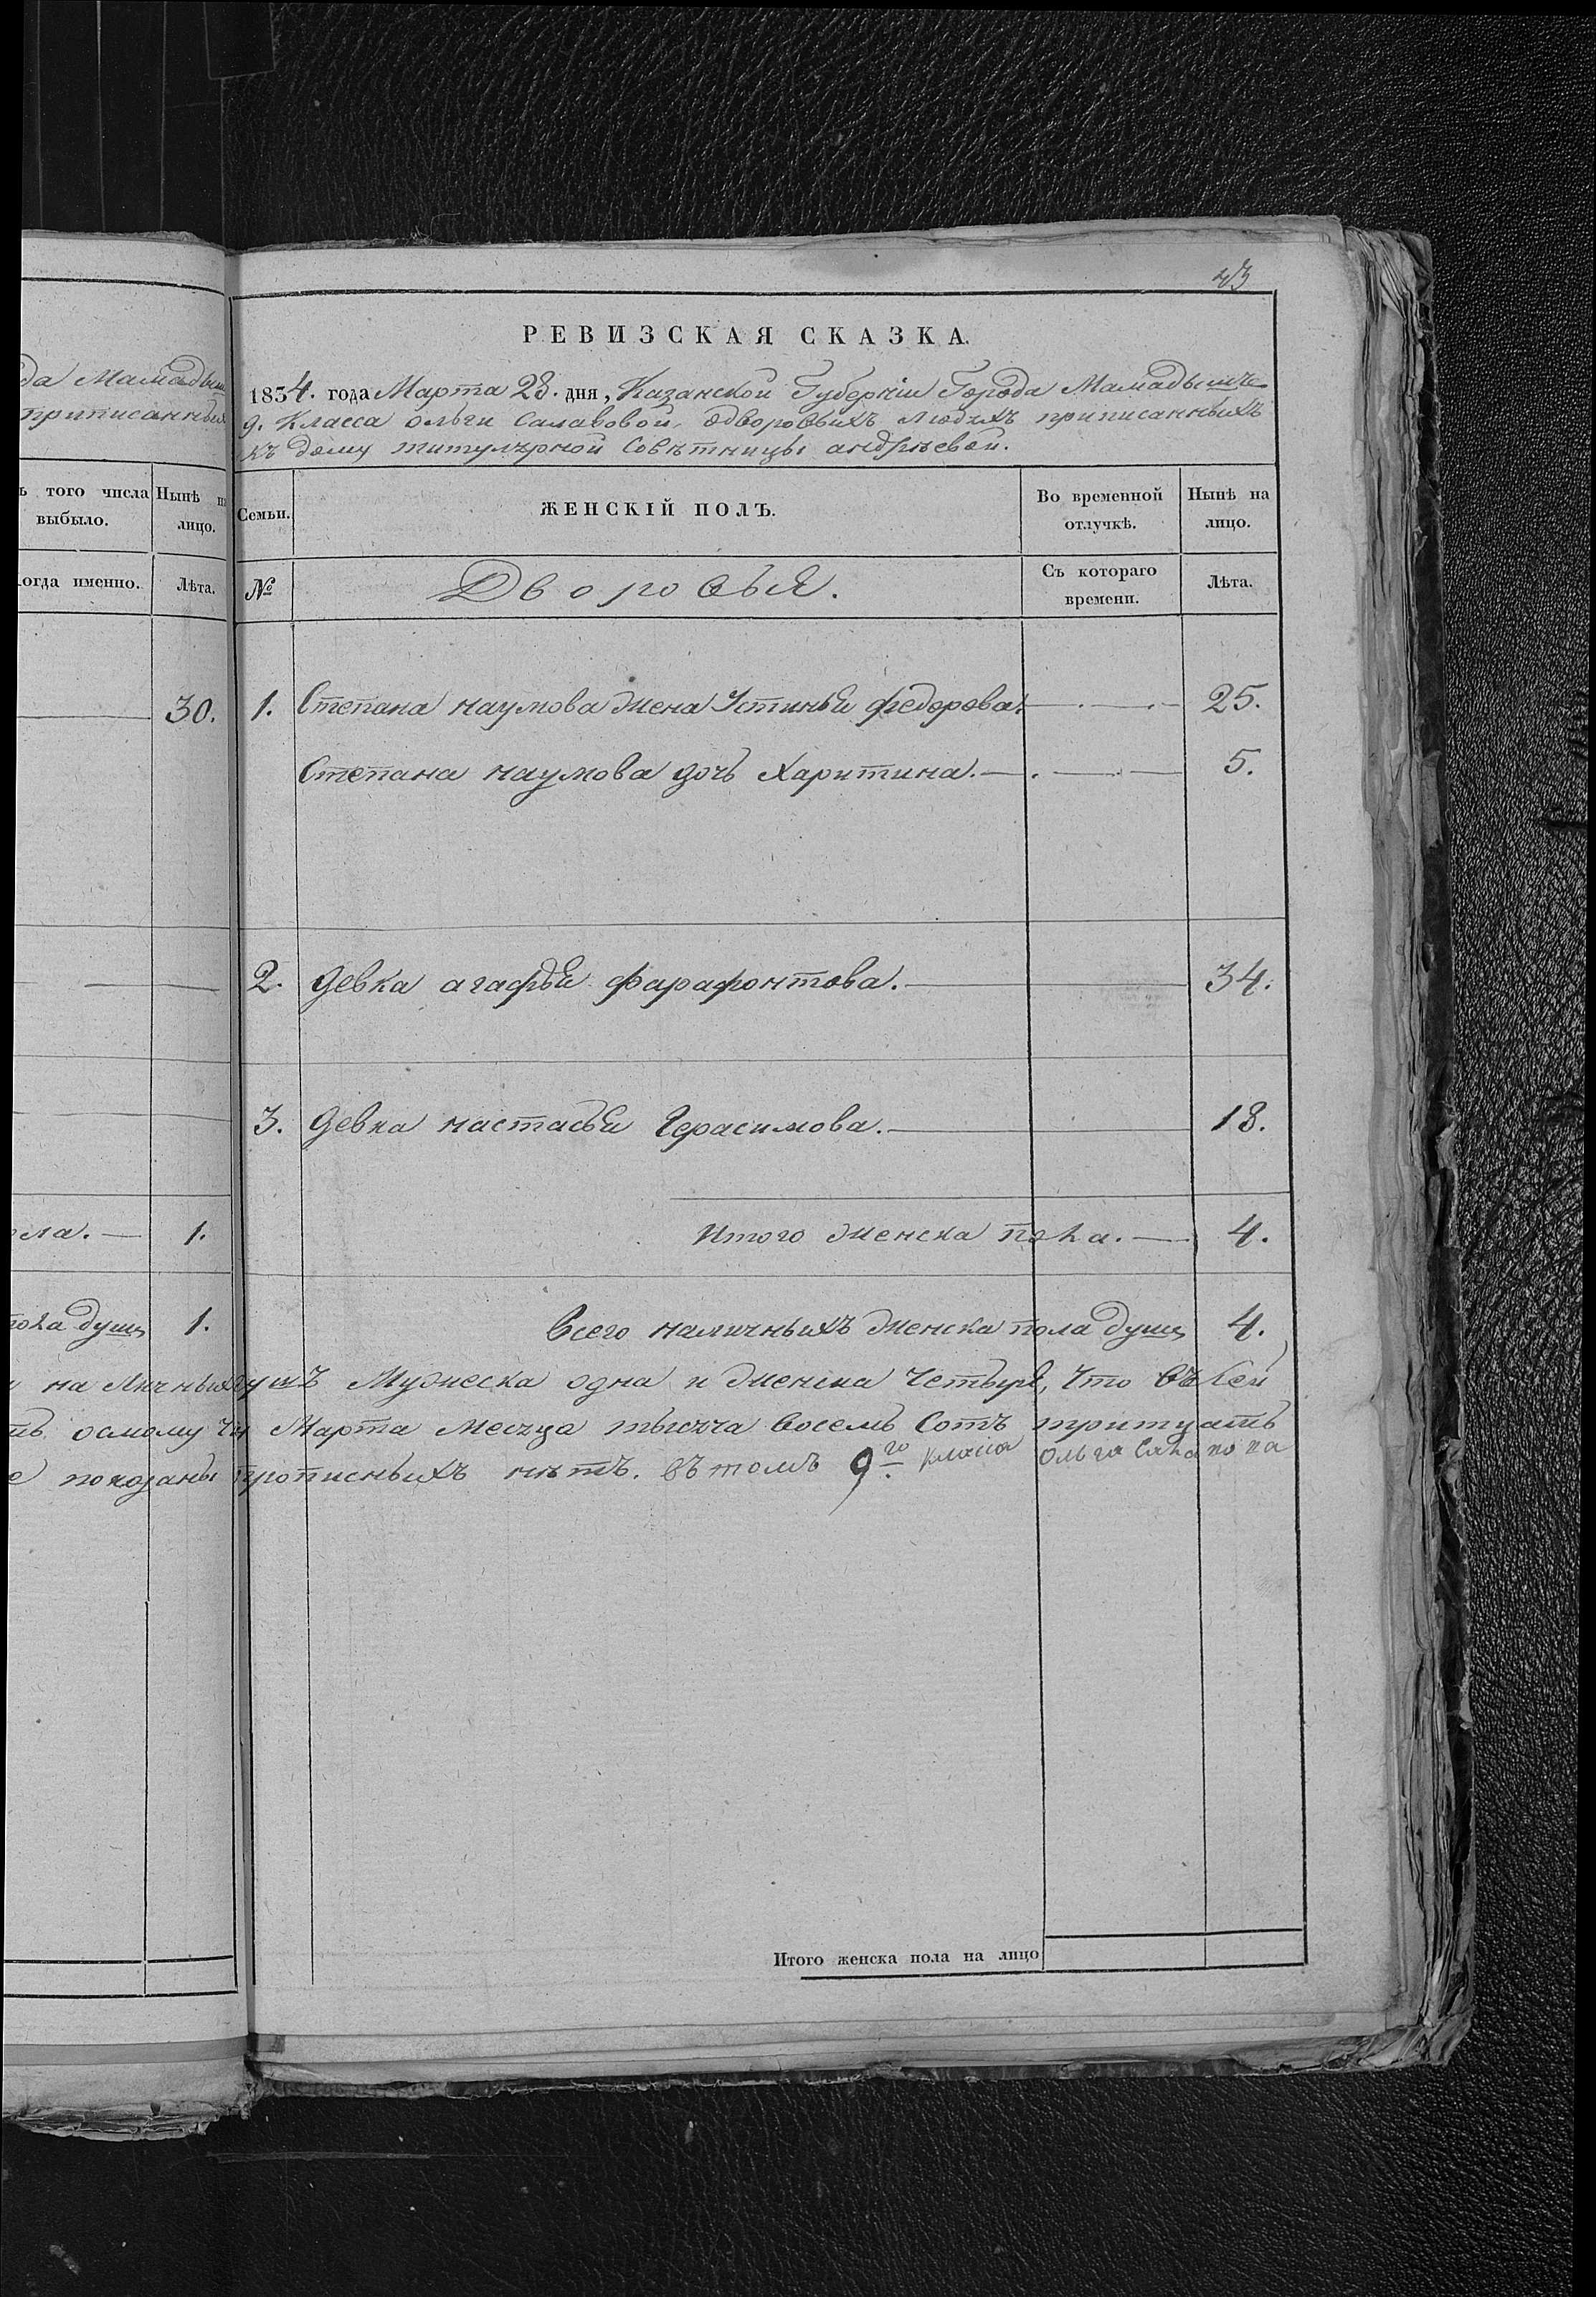 43
да Мамадыш
приписанных
ъ того числа выбыло.
Нынѣ н лицо.
огда именно.
Лѣта.
30.
ла. — 1.
пола душъ 1.
РЕВИЗСКАЯ СКАЗКА.
1834. года Марта 28. дня, Казанской Губернiи Города Мамадыша
9. Класса Ольги Салавовой, одворовыхъ людяхъ приписанныхъ
къ дому титулярной Совѣтницы андрѣевой.
Семьи.
ЖЕНСКIЙ ПОЛЪ.
Во временной отлучкѣ.
Нынѣ на лицо.
№
Дворовыя.
Съ котораго времени.
Лѣта.
1. Степана наумова жена Устинья федорова. 25.
Степана наумова дочь Харитина. 5.
2. девка агафья фарафонтова. 34.
3. девка настасья Герасимова. 18.
Итого женска пола. 4.
Всего наличныхъ женска пола душъ 4.
на личныхъ душъ Мужеска одна и женска Четыре, Что въ сей
осмому Марта Месяца тысяча восемь Сотъ тритцать
показаны прописныхъ нѣтъ. въ томъ 9.го Класса Ольга
Итого женска пола на лицо